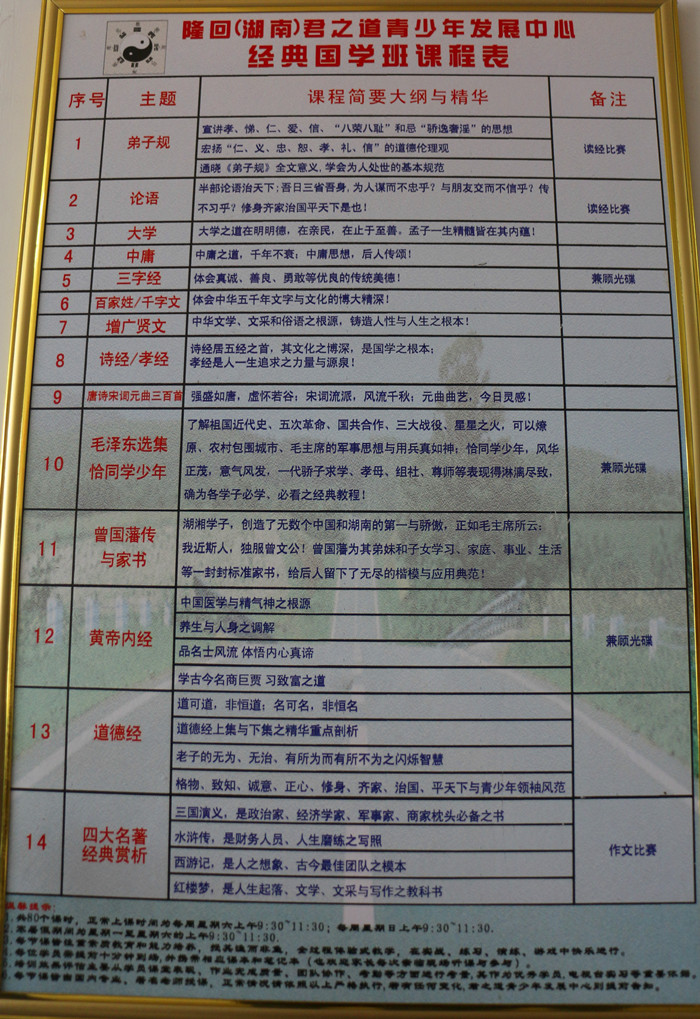 隆回(湖南)君之道青少年发展中心
经典国学班课程表
序号 主题 课程简要大纲与精华 备注
1 弟子规 宣讲孝、悌、仁、爱、信、“八荣八耻”和忌“骄逸奢淫”的思想
宏扬“仁、义、忠、恕、孝、礼、信”的道德伦理观
通晓《弟子规》全文意义,学会为人处世的基本规范
读经比赛
2 论语 半部论语治天下;吾日三省吾身,为人谋而不忠乎?与朋友交而不信乎?传
不习乎?修身齐家治国平天下是也!
读经比赛
3 大学 大学之道在明明德,在亲民,在止于至善。孟子一生精髓皆在其内蕴!
4 中庸 中庸之道,千年不衰;中庸思想,后人传颂!
5 三字经 体会真诚、善良、勇敢等优良的传统美德! 兼顾光碟
6 百家姓/千字文 体会中华五千年文字与文化的博大精深!
7 增广贤文 中华文学、文采和俗语之根源,铸造人性与人生之根本!
8 诗经/孝经 诗经居五经之首,其文化之博深,是国学之根本;
孝经是人一生追求之力量与源泉!
9 唐诗宋词元曲三百首 强盛如唐,虚怀若谷;宋词流派,风流千秋;元曲曲艺,今日灵感!
10 毛泽东选集
恰同学少年
了解祖国近代史、五次革命、国共合作、三大战役、星星之火,可以燎
原、农村包围城市、毛主席的军事思想与用兵真如神;恰同学少年,风华
正茂,意气风发,一代骄子求学、孝母、组社、尊师等表现得淋漓尽致,
确为各学子必学、必看之经典教程!
兼顾光碟
11 曾国藩传
与家书
湖湘学子,创造了无数个中国和湖南的第一与骄傲,正如毛主席所云:
我近斯人,独服曾文公!曾国藩为其弟妹和子女学习、家庭、事业、生活
等一封封标准家书,给后人留下了无尽的楷模与应用典范!
12 黄帝内经 中国医学与精气神之根源
养生与人身之调解
品名士风流 体悟内心真谛
学古今名商巨贾 习致富之道
兼顾光碟
13 道德经 道可道,非恒道;名可名,非恒名
道德经上集与下集之精华重点剖析
老子的无为、无治、有所为而有所不为之闪烁智慧
格物、致知、诚意、正心、修身、齐家、治国、平天下与青少年领袖风范
14 四大名著
经典赏析
三国演义,是政治家、经济学家、军事家、商家枕头必备之书
水浒传,是财务人员、人生磨练之写照
西游记,是人之想象、古今最佳团队之模本
红楼梦,是人生起落、文学、文采与写作之教科书
作文比赛
1.共80个课时,正常上课时间为每周星期六上午9:30~11:30;每周星期日上午9:30~11:30.
2.寒暑假期间为星期一至星期六的上午9:30~11:30.